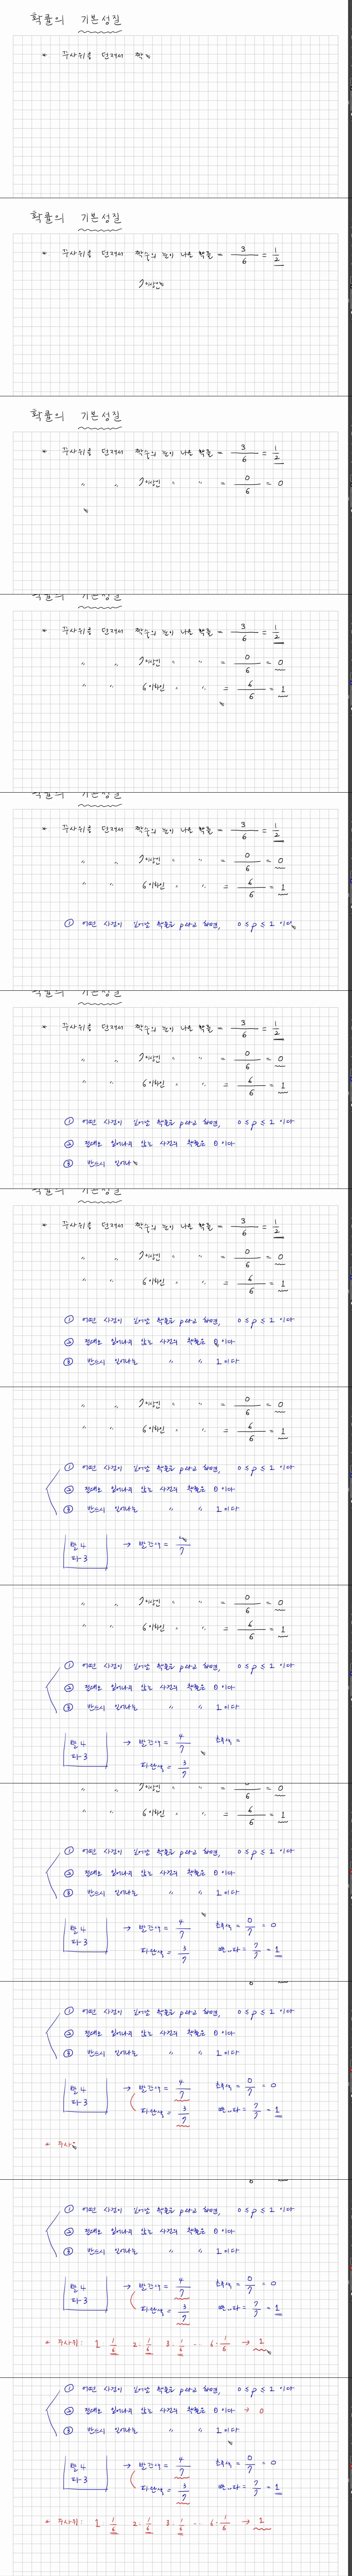 확률의 기본성질
* 주사위를 던져서 짝
확률의 기본성질
* 주사위를 던져서 짝수의 눈이 나올 확률 = 3/6 = 1/2
7이상인
확률의 기본성질
* 주사위를 던져서 짝수의 눈이 나올 확률 = 3/6 = 1/2
〃 〃 7이상인 〃 〃 = 0/6 = 0
확률의 기본성질
* 주사위를 던져서 짝수의 눈이 나올 확률 = 3/6 = 1/2
〃 〃 7이상인 〃 〃 = 0/6 = 0
〃 〃 6이하인 〃 〃 = 6/6 = 1
확률의 기본성질
* 주사위를 던져서 짝수의 눈이 나올 확률 = 3/6 = 1/2
〃 〃 7이상인 〃 〃 = 0/6 = 0
〃 〃 6이하인 〃 〃 = 6/6 = 1
① 어떤 사건이 일어날 확률을 p라고 하면, 0 ≤ p ≤ 1 이다
확률의 기본성질
* 주사위를 던져서 짝수의 눈이 나올 확률 = 3/6 = 1/2
〃 〃 7이상인 〃 〃 = 0/6 = 0
〃 〃 6이하인 〃 〃 = 6/6 = 1
① 어떤 사건이 일어날 확률을 p라고 하면, 0 ≤ p ≤ 1 이다
② 절대로 일어나지 않는 사건의 확률은 0이다
③ 반드시 일어나
확률의 기본성질
* 주사위를 던져서 짝수의 눈이 나올 확률 = 3/6 = 1/2
〃 〃 7이상인 〃 〃 = 0/6 = 0
〃 〃 6이하인 〃 〃 = 6/6 = 1
① 어떤 사건이 일어날 확률을 p라고 하면, 0 ≤ p ≤ 1 이다
② 절대로 일어나지 않는 사건의 확률은 0이다
③ 반드시 일어나는 〃 〃 1이다
〃 〃 7이상인 〃 〃 = 0/6 = 0
〃 〃 6이하인 〃 〃 = 6/6 = 1
① 어떤 사건이 일어날 확률을 p라고 하면, 0 ≤ p ≤ 1 이다
② 절대로 일어나지 않는 사건의 확률은 0이다
③ 반드시 일어나는 〃 〃 1이다
빨4 → 빨간색 = 4/7
파3
〃 〃 7이상인 〃 〃 = 0/6 = 0
〃 〃 6이하인 〃 〃 = 6/6 = 1
① 어떤 사건이 일어날 확률을 p라고 하면, 0 ≤ p ≤ 1 이다
② 절대로 일어나지 않는 사건의 확률은 0이다
③ 반드시 일어나는 〃 〃 1이다
빨4 → 빨간색 = 4/7 초록색 =
파3 파란색 = 3/7
〃 〃 7이상인 〃 〃 = 0/6 = 0
〃 〃 6이하인 〃 〃 = 6/6 = 1
① 어떤 사건이 일어날 확률을 p라고 하면, 0 ≤ p ≤ 1 이다
② 절대로 일어나지 않는 사건의 확률은 0이다
③ 반드시 일어나는 〃 〃 1이다
빨4 → 빨간색 = 4/7 초록색 = 0/7 = 0
파3 파란색 = 3/7 빨or파 = 7/7 = 1
① 어떤 사건이 일어날 확률을 p라고 하면, 0 ≤ p ≤ 1 이다
② 절대로 일어나지 않는 사건의 확률은 0이다
③ 반드시 일어나는 〃 〃 1이다
빨4 → 빨간색 = 4/7 초록색 = 0/7 = 0
파3 파란색 = 3/7 빨or파 = 7/7 = 1
* 주사
① 어떤 사건이 일어날 확률을 p라고 하면, 0 ≤ p ≤ 1 이다
② 절대로 일어나지 않는 사건의 확률은 0이다
③ 반드시 일어나는 〃 〃 1이다
빨4 → 빨간색 = 4/7 초록색 = 0/7 = 0
파3 파란색 = 3/7 빨or파 = 7/7 = 1
* 주사위: 1. 1/6 2. 1/6 3. 1/6 ... 6. 1/6 → 1
① 어떤 사건이 일어날 확률을 p라고 하면, 0 ≤ p ≤ 1 이다
② 절대로 일어나지 않는 사건의 확률은 0이다 → 0
③ 반드시 일어나는 〃 〃 1이다
빨4 → 빨간색 = 4/7 초록색 = 0/7 = 0
파3 파란색 = 3/7 빨or파 = 7/7 = 1
* 주사위: 1. 1/6 2. 1/6 3. 1/6 ... 6. 1/6 → 1